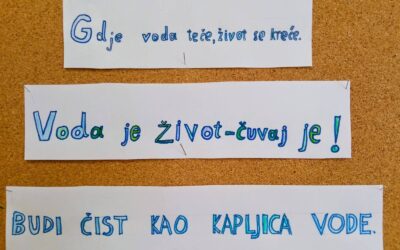 Gdje voda teče, život se kreće.
Voda je život-čuvaj je!
BUDI ČIST KAO KAPLJICA VODE.